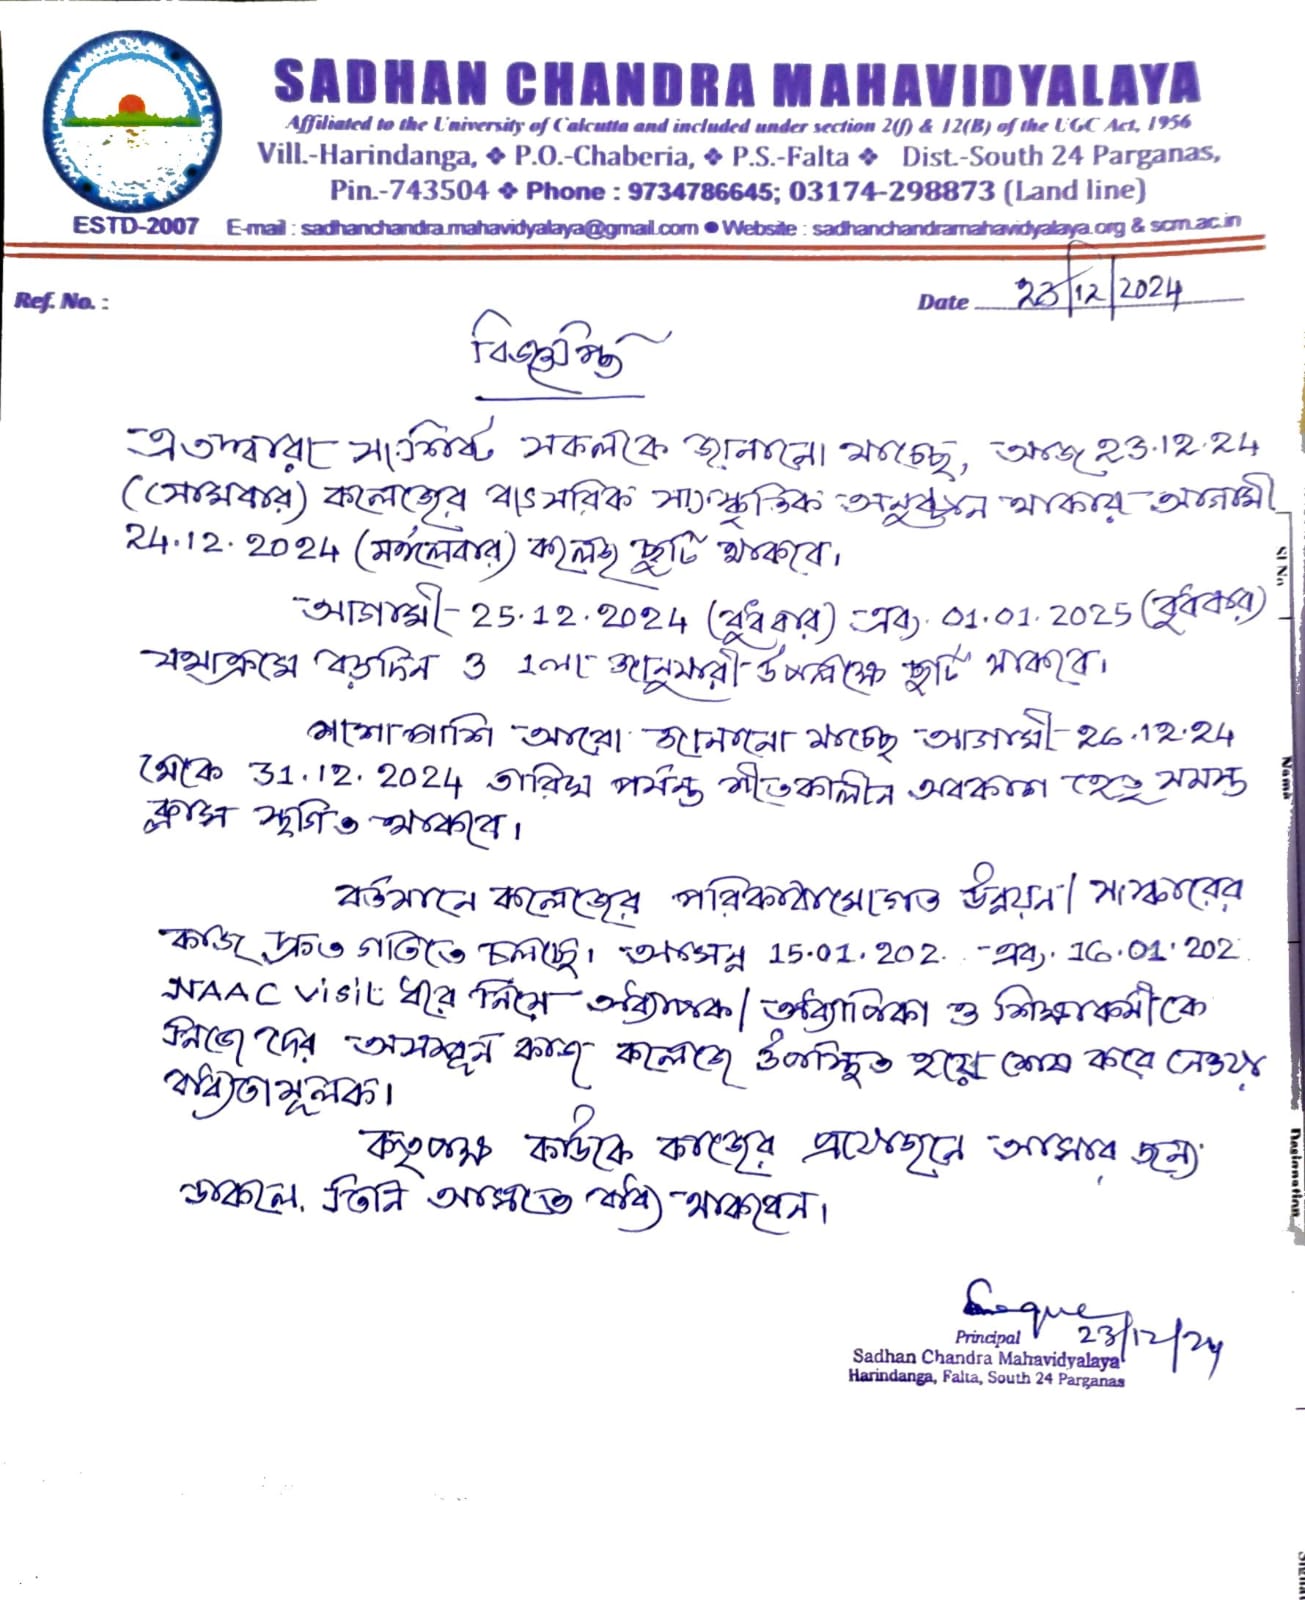 SADHAN CHANDRA MAHAVIDYALAYA
Affiliated to the University of Calcutta and included under section 2(f) & 12(B) of the UGC Act, 1956
Vill.-Harindanga, ❖ P.O.-Chaberia, ❖ P.S.-Falta ❖ Dist.-South 24 Parganas,
Pin.-743504 ❖ Phone : 9734786645; 03174-298873 (Land line)
ESTD-2007 E-mail : sadhanchandra.mahavidyalaya@gmail.com ● Website : sadhanchandramahavidyalaya.org & scm.ac.in
Ref. No. : Date 23/12/2024
বিজ্ঞপ্তি
এতদ্বারা সংশ্লিষ্ট সকলকে জানানো যাচ্ছে, আজ 23.12.24
(সোমবার) কলেজের বাৎসরিক সাংস্কৃতিক অনুষ্ঠান থাকায় আগামী
24.12.2024 (মঙ্গলবার) কলেজ ছুটি থাকবে।
আগামী 25.12.2024 (বুধবার) এবং 01.01.2025 (বুধবার)
যথাক্রমে বড়দিন ও ১লা জানুয়ারী উপলক্ষে ছুটি থাকবে।
পাশাপাশি আরো জানানো যাচ্ছে আগামী 26.12.24
থেকে 31.12.2024 তারিখ পর্যন্ত শীতকালীন অবকাশ হেতু সমস্ত
ক্লাস স্থগিত থাকবে।
বর্তমানে কলেজের পরিকাঠামোগত উন্নয়ন/সংস্কারের
কাজ দ্রুত গতিতে চলছে। আসন্ন 15.01.202 এবং 16.01.202
NAAC visit ধরে নিয়ে অধ্যাপক/অধ্যাপিকা ও শিক্ষাকর্মীকে
নিজেদের অসম্পূর্ন কাজ কলেজে উপস্থিত হয়ে শেষ করে নেওয়া
বাধ্যতামূলক।
কতৃপক্ষ কাউকে কাজের প্রয়োজনে আসার জন্য
ডাকলে, তিনি আসতে বাধ্য থাকবেন।
23/12/24
Principal
Sadhan Chandra Mahavidyalaya
Harindanga, Falta, South 24 Parganas
Name
Designation